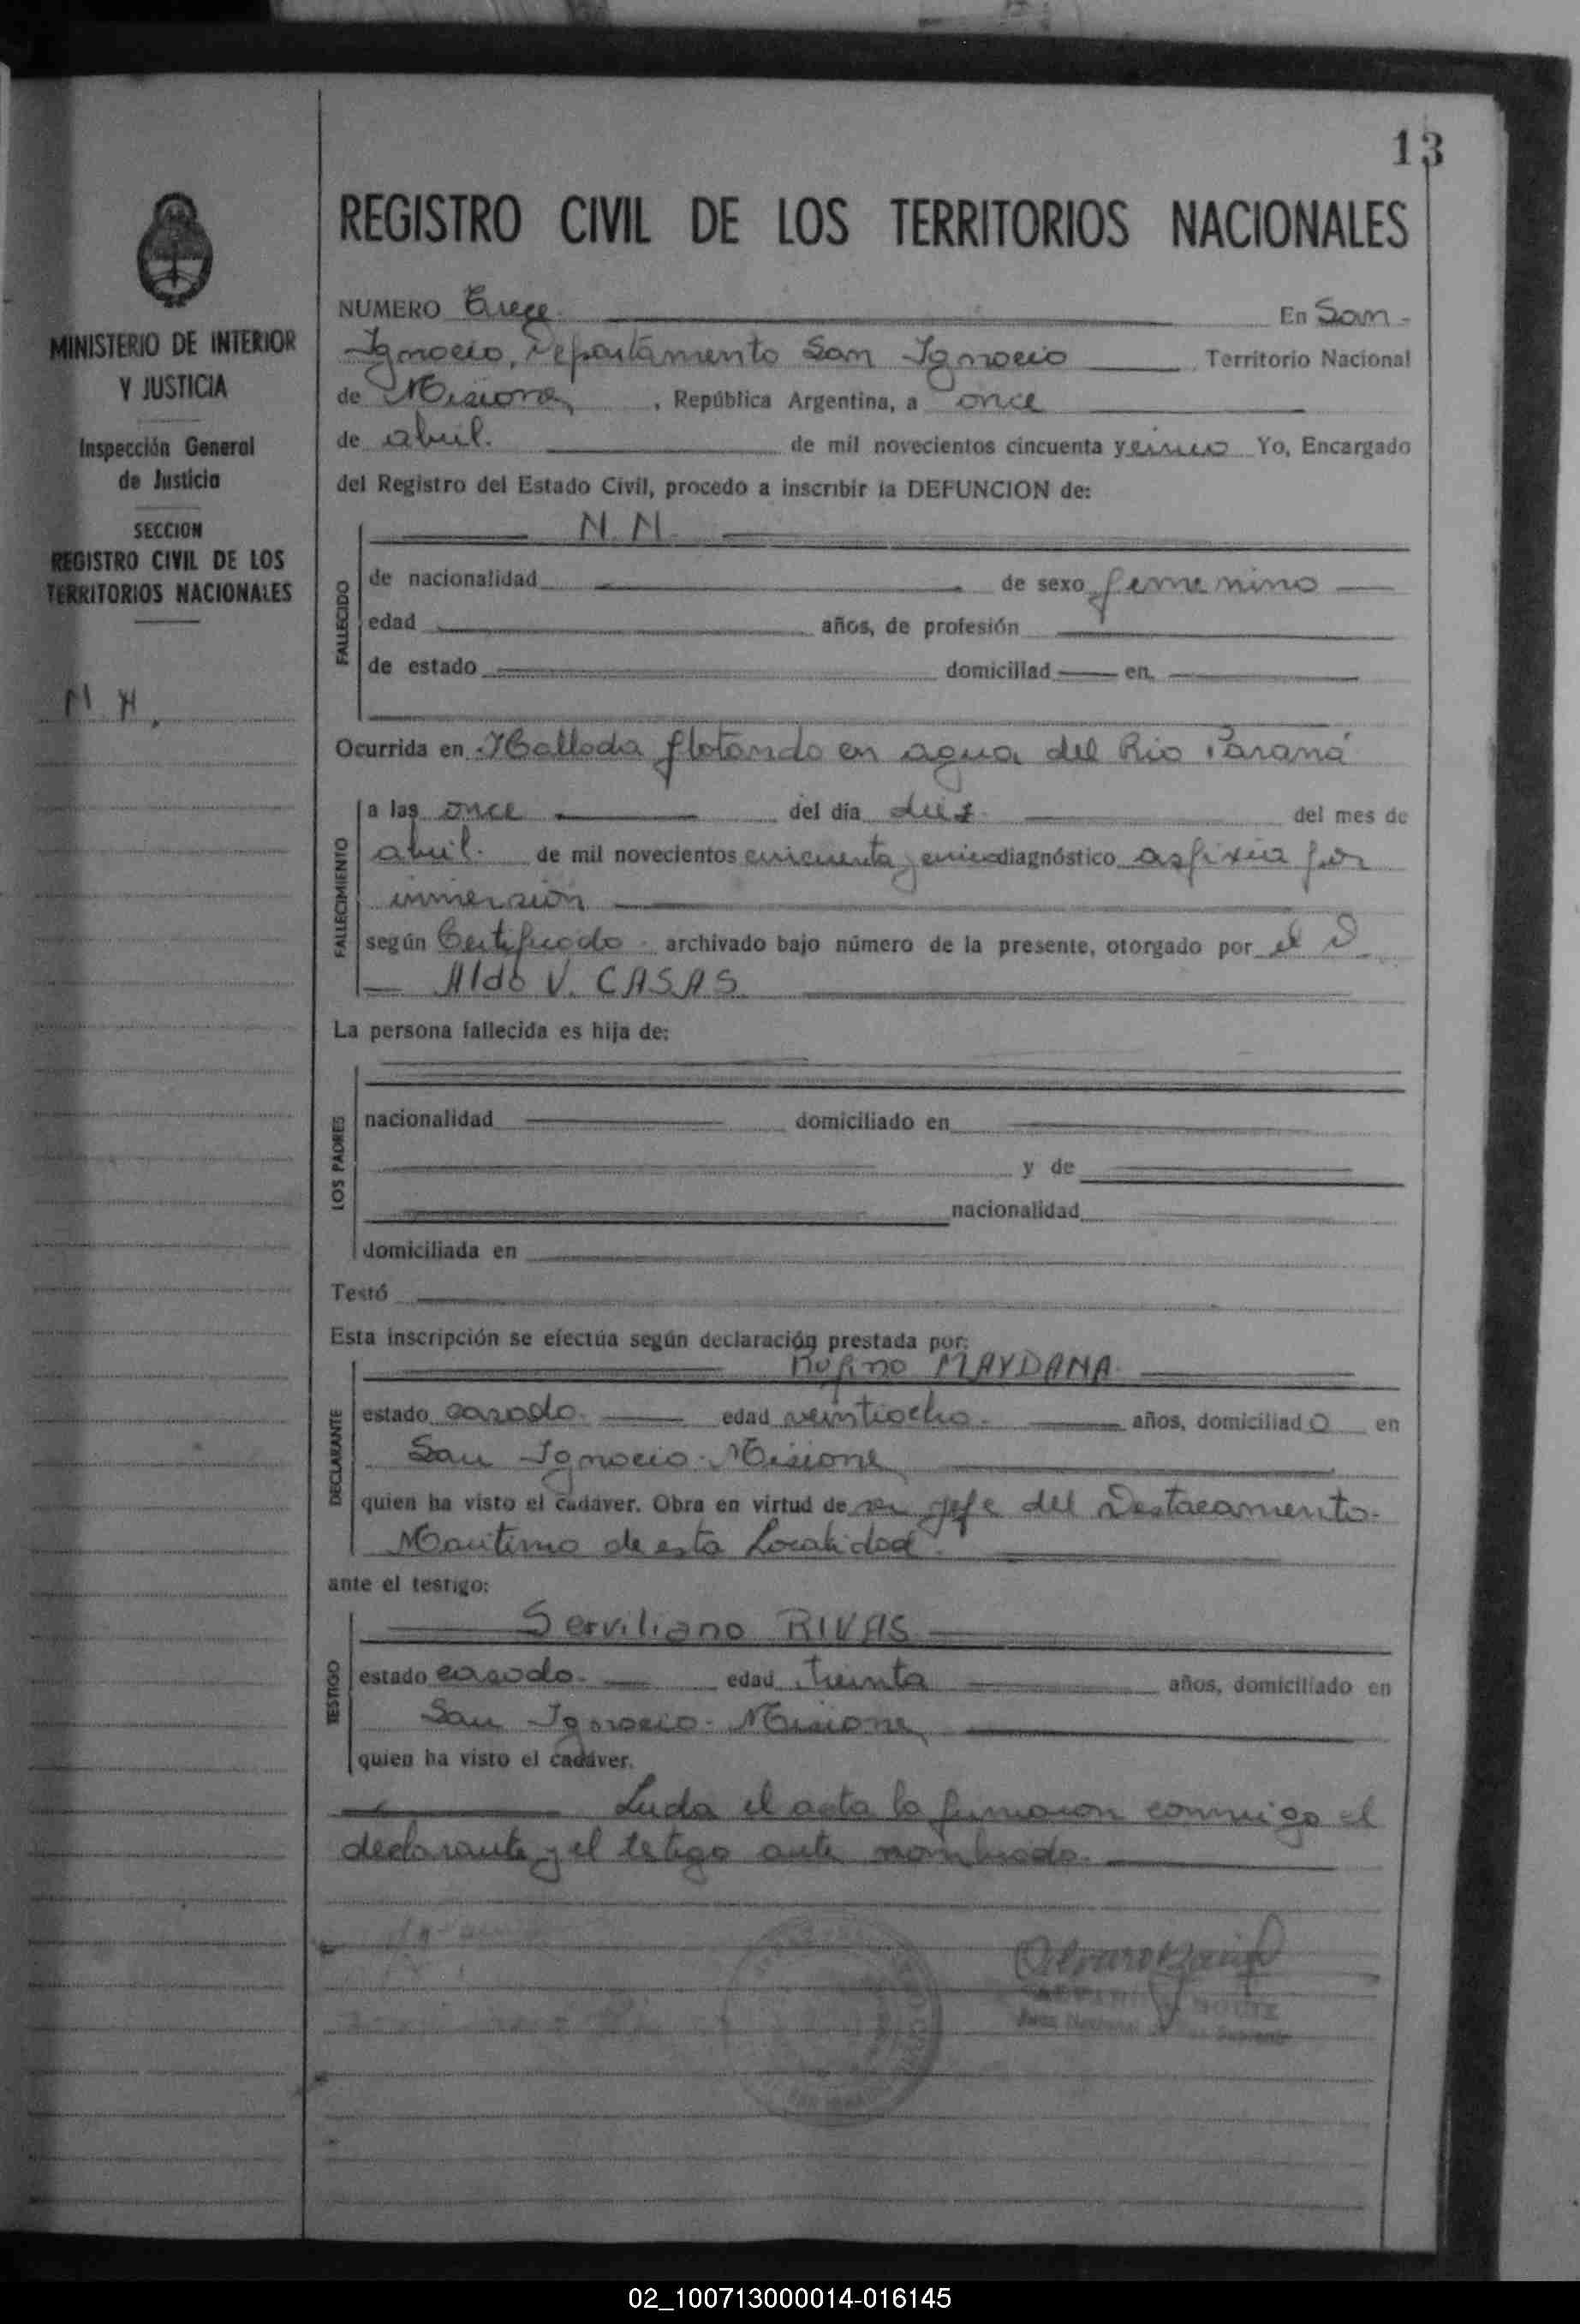 13
REGISTRO CIVIL DE LOS TERRITORIOS NACIONALES
MINISTERIO DE INTERIOR
Y JUSTICIA
Inspección General
de Justicia
SECCION
REGISTRO CIVIL DE LOS
TERRITORIOS NACIONALES
N N.
NUMERO Trece. En San-
Ignacio, Departamento San Ignacio Territorio Nacional
de Misiones, República Argentina, a once
de abril. de mil novecientos cincuenta y cinco Yo, Encargado
del Registro del Estado Civil, procedo a inscribir la DEFUNCION de:
FALLECIDO
N. N.
de nacionalidad de sexo femenino
edad años, de profesión
de estado domiciliad en
Ocurrida en Hallada flotando en aguas del Rio Paraná
FALLECIMIENTO
a las once del día diez del mes de
abril. de mil novecientos cincuenta y cinco diagnóstico asfixia por
inmersión
según Certificado archivado bajo número de la presente, otorgado por el D
Aldo V. CASAS
La persona fallecida es hija de:
LOS PADRES
nacionalidad domiciliado en
y de
nacionalidad
domiciliada en
Testó
Esta inscripción se efectúa según declaración prestada por:
DECLARANTE
Rufino MAYDANA
estado casado. edad veintiocho. años, domiciliado en
San Ignacio-Misiones
quien ha visto el cadáver. Obra en virtud de ser jefe del Destacamento.
Maritimo de esta Localidad.
ante el testigo:
TESTIGO
Serviliano RIVAS
estado casado. edad treinta años, domiciliado en
San Ignacio-Misiones
quien ha visto el cadáver.
Leida el acta la firmaron conmigo el
declarante y el testigo ante nombrado.
02_100713000014-016145